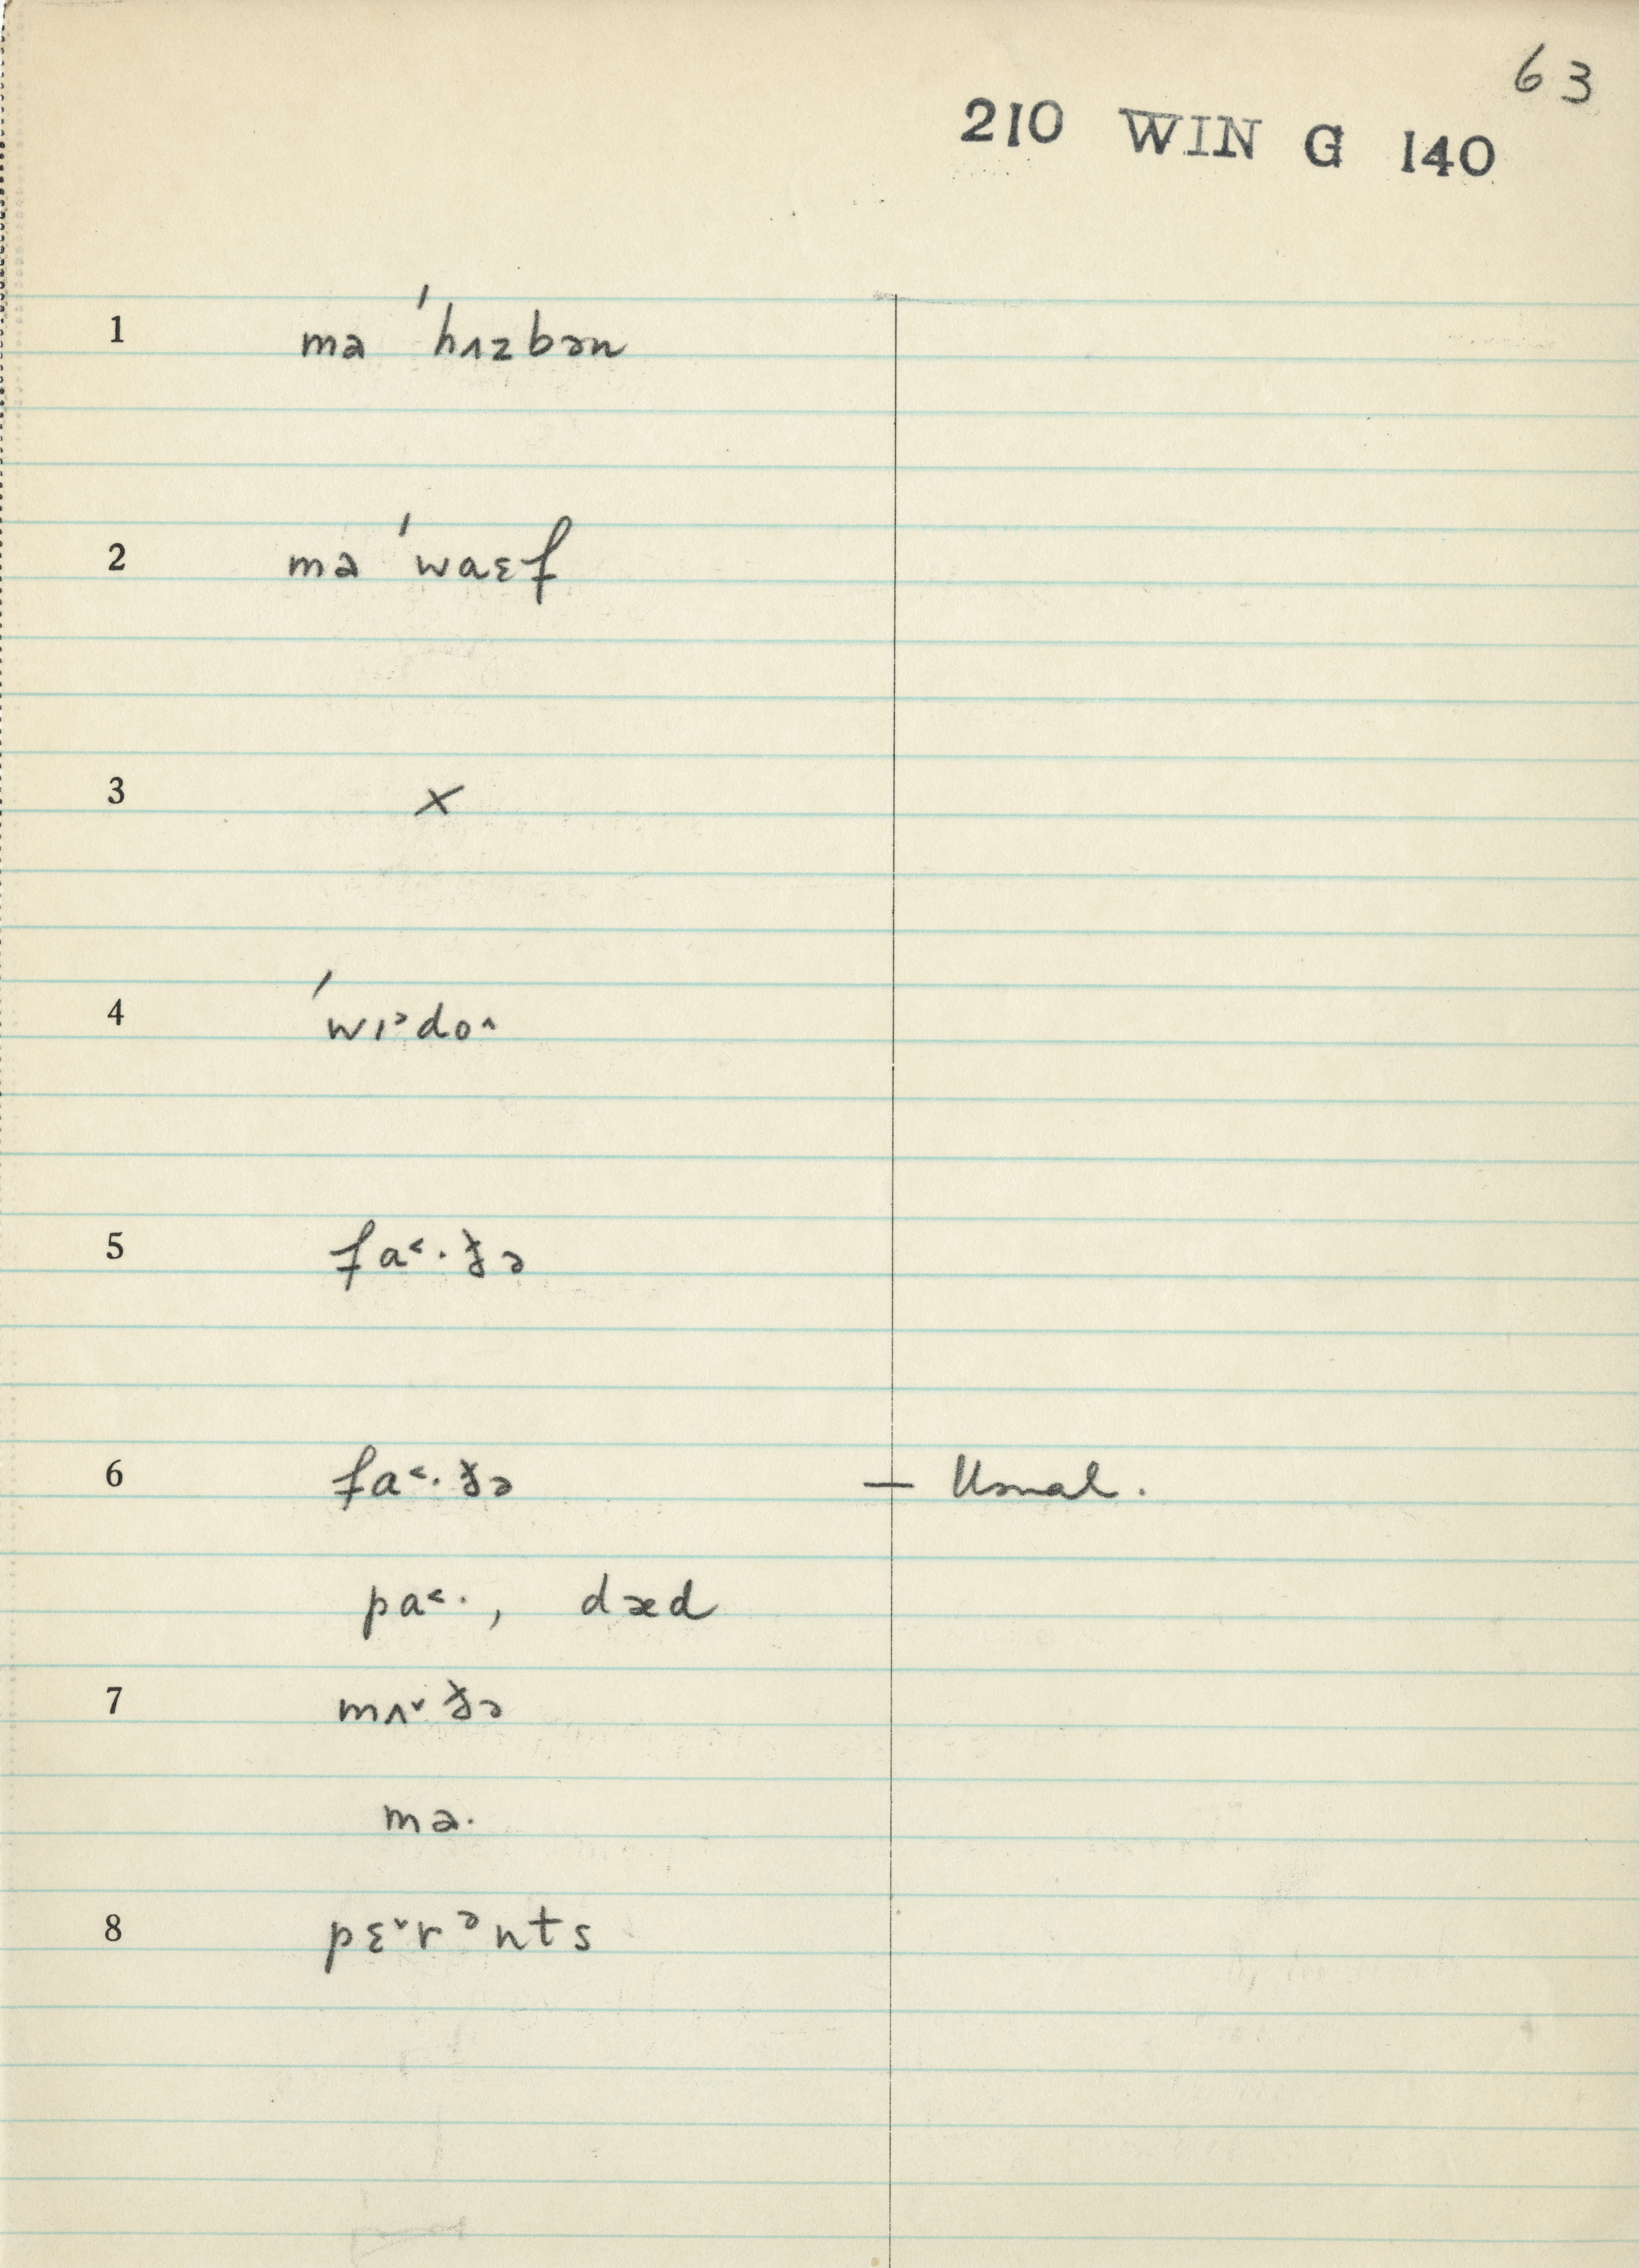 63
210 WIN G 140
1 ma ˈhʌzbən
2 ma ˈwaɛf
3 ×
4 ˈwɪᵊdo^
5 fa˂·ðə
6 fa˂·ðə — Usual.
pa˂·, dæd
7 mʌ˅ðə
ma·
8 pɛ˅rᵊnts